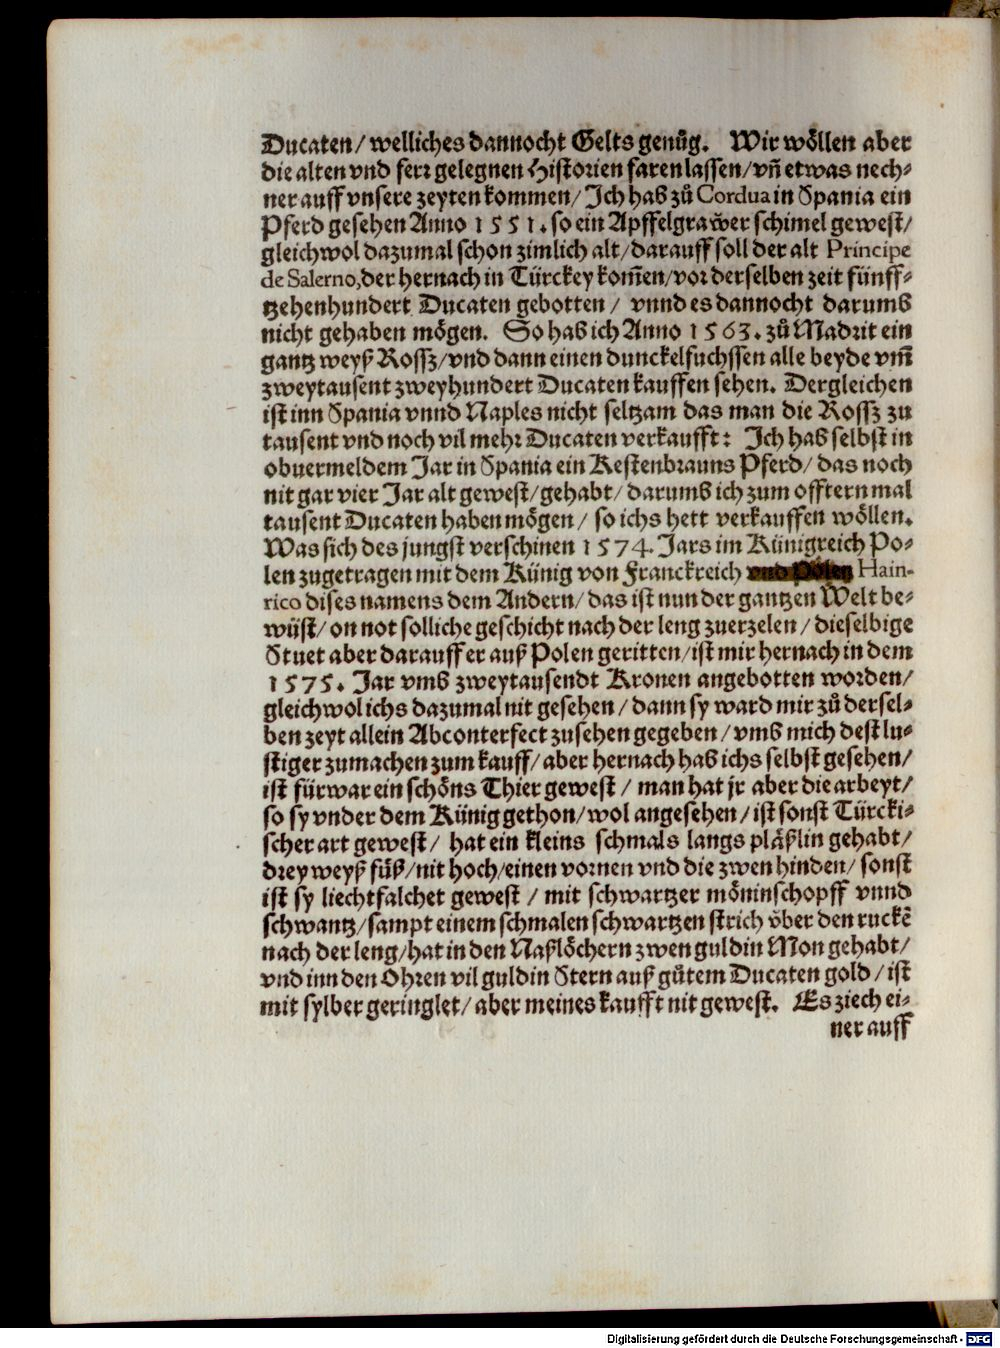 Ducaten/ welliches dannocht Gelts genůg. Wir wöllen aber
die alten vnd ferr gelegnen Historien faren lassen/ vñ etwas nech-
ner auff vnsere zeyten kommen/ Jch hab zů Cordua in Spania ein
Pferd gesehen Anno 1551. so ein Apffelgrawer schimel gewest/
gleichwol dazumal schon zimlich alt/ darauff soll der alt Principe
de Salerno, der hernach in Türckey kom̃en/ vor derselben zeit fünff-
tzehenhundert Ducaten gebotten/ vnnd es dannocht darumb
nicht gehaben mögen. So hab ich Anno 1563. zů Madrit ein
gantz weyß Rossz/ vnd dann einen dunckelfuchssen alle beyde vm̃
zweytausent zweyhundert Ducaten kauffen sehen. Dergleichen
ist inn Spania vnnd Naples nicht seltzam das man die Rossz zu
tausent vnd noch vil mehr Ducaten verkaufft: Jch hab selbst in
obuermeldem Jar in Spania ein Kestenbrauns Pferd/ das noch
nit gar vier Jar alt gewest/ gehabt/ darumb ich zum offtern mal
tausent Ducaten haben mögen/ so ichs hett verkauffen wöllen.
Was sich des jungst verschinen 1574. Jars im Künigreich Po-
len zugetragen mit dem Künig von Franckreich vnd Polen Hain-
rico dises namens dem Andern/ das ist nun der gantzen Welt be-
wüst/ on not solliche geschicht nach der leng zuerzelen/ dieselbige
Stuet aber darauff er auß Polen geritten/ ist mir hernach in dem
1575. Jar vmb zweytausendt Kronen angebotten worden/
gleichwol ichs dazumal nit gesehen/ dann sy ward mir zů dersel-
ben zeyt allein Abconterfect zusehen gegeben/ vmb mich dest lu-
stiger zumachen zum kauff/ aber hernach hab ichs selbst gesehen/
ist fürwar ein schöns Thier gewest/ man hat jr aber die arbeyt/
so sy vnder dem Künig gethon/ wol angesehen/ ist sonst Türcki-
scher art gewest/ hat ein kleins schmals langs pläßlin gehabt/
drey weyß füß/ nit hoch/ einen vornen vnd die zwen hinden/ sonst
ist sy liechtfalchet gewest/ mit schwartzer möninschopff vnnd
schwantz/ sampt einem schmalen schwartzen strich vber den ruckẽ
nach der leng/ hat in den Naßlöchern zwen guldin Mon gehabt/
vnd inn den Ohren vil guldin Stern auß gůtem Ducaten gold/ ist
mit sylber geringlet/ aber meines kaufft nit gewest. Es ziech ei-
ner auff
Digitalisierung gefördert durch die Deutsche Forschungsgemeinschaft - DFG